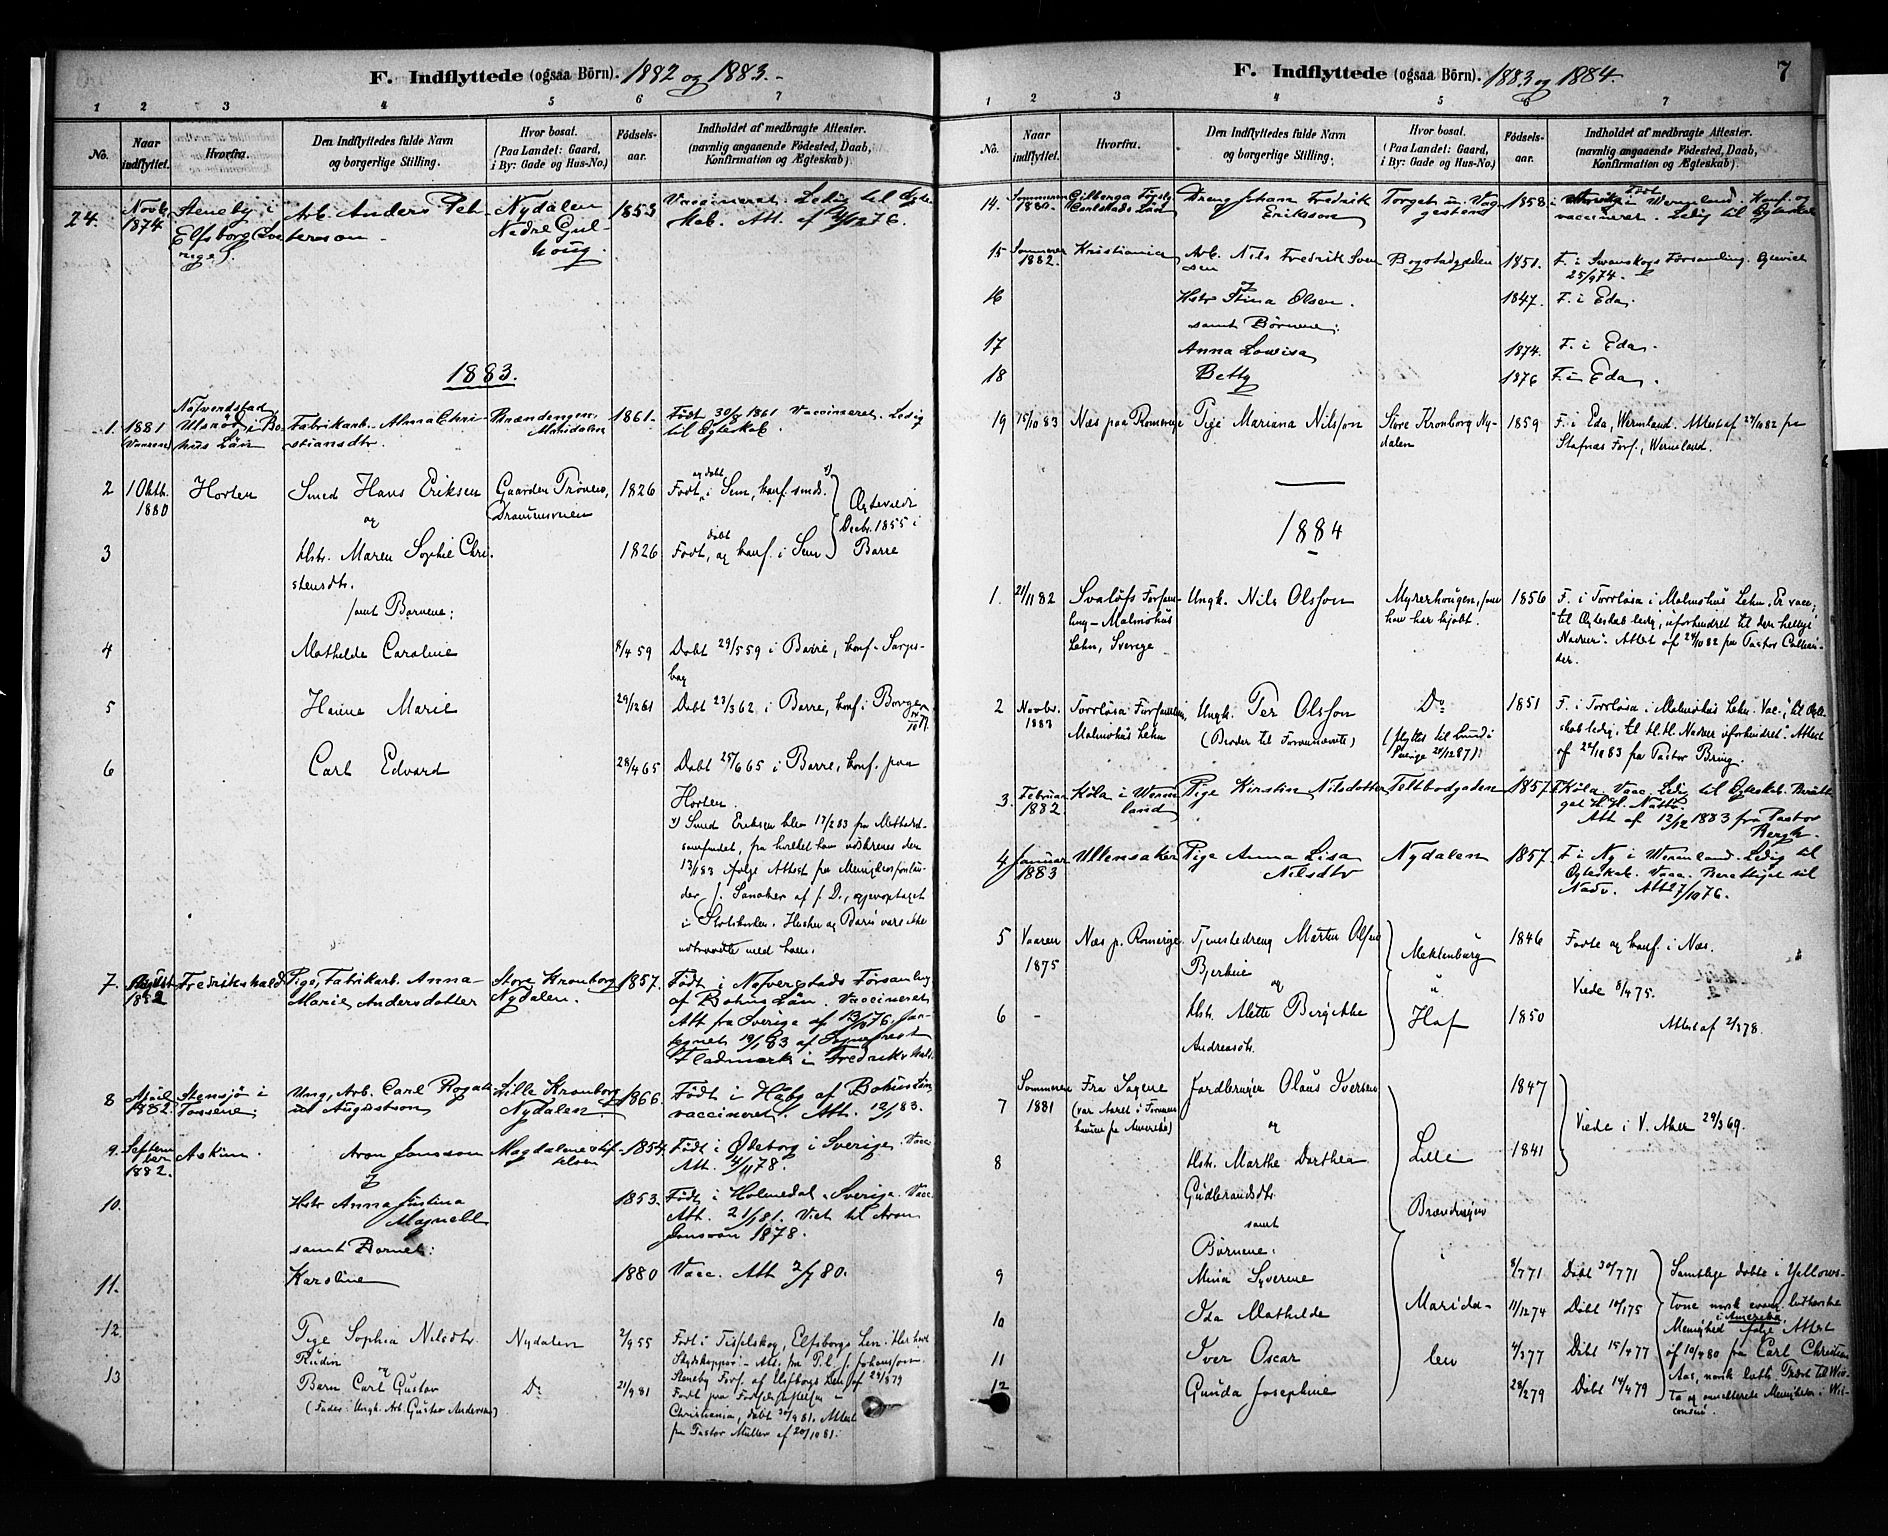 F. Indflyttede (ogsaa Börn). 1882 og 1883.
1 2 3 4 5 6 7
No.
Naar indflyttet.
Hvorfra.
Den Indflyttedes fulde Navn og borgerlige Stilling.
Hvor bosat. (Paa Landet: Gaard, i By: Gade og Hus-No.)
Födsels-aar.
Indholdet af medbragte Attester. (navnlig angaaende Födested, Daab, Konfirmation og Ægteskab).
24. Novbr. Steneby i Arb. Anders Pet- Nydalen 1853 Vaccineret. Ledig til Ægte-
1874 Elfsborg (Sve- terson Nedre Gul-
rige). houg.
1883.
1. 1881 Fabrikarb. Alma Chri- Brændengen, 1861. Født 30/8 1861 Vaccineret. Ledig
stiansdtr. Maridalen til Ægteskab.
2 1 Oktb. Horten Smed Hans Eriksen Gaarden 1826 Født og døbt i Sem, konf. smds. Ægteviede
1880 og Decbr. 1855 i
3 Hstr. Maren Sophie Chri- 1826 Født, døbt og konf. i Sem Borre
stensdtr.
samt Børnene:
4 Mathilde Caroline 8/4 59 Døbt 29/5 59 i Borre, konf. Sarps-
borg
5 Hanne Marie 29/12 61 Døbt 23/3 62 i Borre, konf. i Borgen
6 Carl Edvard 28/4 65 Døbt 25/6 65 i Borre, konf. paa
Horten.
Smed Eriksen blev 17/2 83 fra Methodist-
samfundet, fra hvilket han udskreves den
13/1 83 ifølge Attest fra Menighedsforstan-
der
i Slotskirken. Hustru og Børn vare ikke
udtraadte med ham.
7. August Fredrikshald Pige, Fabrikarb. Anna Store Kronborg 1857. Født i Nafverstads Församling
1882 Marie Andersdotter Nydalen. af Bohus Län. Vaccineret
Att fra Sverige af 13/10 76,
8 April Stensjø i Ung. Arb. Carl Lille Kronborg 1866. Født i Haby af Bohus Län
1882. Tossene. Augustson Nydalen vaccineret. Att. 12/1 83.
9. Septem- Askim. Aron Jansson Magdalenestif- 1854. Født i Ødeborg i Sverige. Vacc.
ber telsen Att. 4/11 78.
1882.
10. Hstr Anna Justina 1853. Født i Holmedal. Sverige. Vacc.
Magnell Att. 21/1 81. Viet til Aron
samt Barnet: Jansson 1878.
11. Karoline 1880 Vacc. Att 2/7 80.
12. Pige Sophia Nilsdtr. Nydalen 2/9 55 Født i Tisselskog, Elfsborgs Len.
Rudin
og Steneby Fors. af Elfsborgs Len af 24/8 79
13 Barn Carl Gustav Do 21/9 81 Født paa Fødselsstiftelsen i
(Fader: Ungk. Arb. Gustav Andersen) Christiania, døbt 30/9 81. Attest
fra Pastor Müller af 20/10 81.
F. Indflyttede (ogsaa Börn). 1883 og 1884. 7
1 2 3 4 5 6 7
No.
Naar indflyttet.
Hvorfra.
Den Indflyttedes fulde Navn og borgerlige Stilling.
Hvor bosat. (Paa Landet: Gaard, i By: Gade og Hus-No.)
Födsels-aar.
Indholdet af medbragte Attester. (navnlig angaaende Födested, Daab, Konfirmation og Ægteskab).
14. Sommeren Gilberga Dreng Johan Fredrik Torget u. Vog- 1858. Født i Wermland. Konf. og
Carlstads Län Erikson gestend vaccineret. Ledig til Ægteskab
15 Sommeren Kristiania Arb. Nils Fredrik Sven- Bogstadgaden 1851. F. i Svanskogs Församling. Gjevied
1882. sen 25/9 74.
og
16 Hstr Stina Olsen. 1847. F. i Eda.
samt Børnene:
17 Anna Lowisa 1874. F. i Eda.
18 Betty 1876 F. i Eda.
19 15/10 83 Næs paa Romerige Pige Mariana Nilsson Store Kronborg Ny- 1859 F. i Eda, Wermland. Attest af 27/10 82 fra
dalen Stafnäs Fors., Wermland.
1884
1. 21/11 82 Svalöfs Forsam- Ungk. Nils Olsson Myrerhougen, som 1856 F. i Torrlösa i Malmöhus Lehn. Er vacc.,
ling – Malmöhus han har kjøbt. "til Ægteskab ledig, uforhindret til den hellige
Lehn, Sverige Nadver". Attest af 24/10 82 fra Pastor
2 Novbr. Torrlösa Forsamlin, Ungk. Per Olsson Do 1851 F. i Torrlösa i Malmöhus Lehn. Vac., til Ægte-
1883 Malmöhus Lehn (Broder til Forannævnte) (flyttet til Lund i skab ledig, til H. H. Nadver uforhindret. Attest
Sverige 24/12 87). af 24/10 83 fra Pastor Bring.
3. Februar Köla i Werm- Pige Kerstin Nilsdotter Teltbodgaden 1857. F. Köla. Vacc. Ledig til Ægteskab. Beretti-
1882. land get H. H. Nattv.
Att af 12/12 1883 fra Pastor
Bergh.
4 Januar Ullensaker Pige Anna Lisa Nydalen 1857. F. i Ny i Wermland. Ledig til
1883 Nilsdtr Ægteskab. Vacc. Berettiget til
Nadv. Att 27/10 76.
5 Vaaren Næs p. Romerige. Tjenestedreng Martin Olsen Meklenborg 1846 Fødte og konf. i Næs.
1875 Bjerkni u
og Viede 8/4 75.
6 - Hstr. Alette Birgitte Haf 1850 Attest af 2/3 78.
Andreasdtr.
Sommeren Fra Sagene Jordbruger Olaus Iversen 1847
7 1881 (var Aaret i Forveien
komne fra Amerika) og Viede i V. Aker 29/3 69.
8 Hstr. Marthe Dorthea Lille 1841
Gudbrandsdtr.
samt Brændengen
Børnene: i
9 Mina Syverine 8/7 71 Døbt 30/7 71 Samtlige døbte i Yellows-
10 Ida Mathilde Marida- 11/12 74 Døbt 10/1 75 tone norsk evan. lutherske
Menighed i Amerika, ifølge Attest
11 Iver Oscar len 4/3 77 Døbt 15/4 77 af 10/4 80 fra Carl Christian
12 Gunda Josephine 28/2 79 Døbt 14/4 79 Aas, norsk luth. Præst til Wio-
ta og omliggende Menigheder i Wis-
consin.